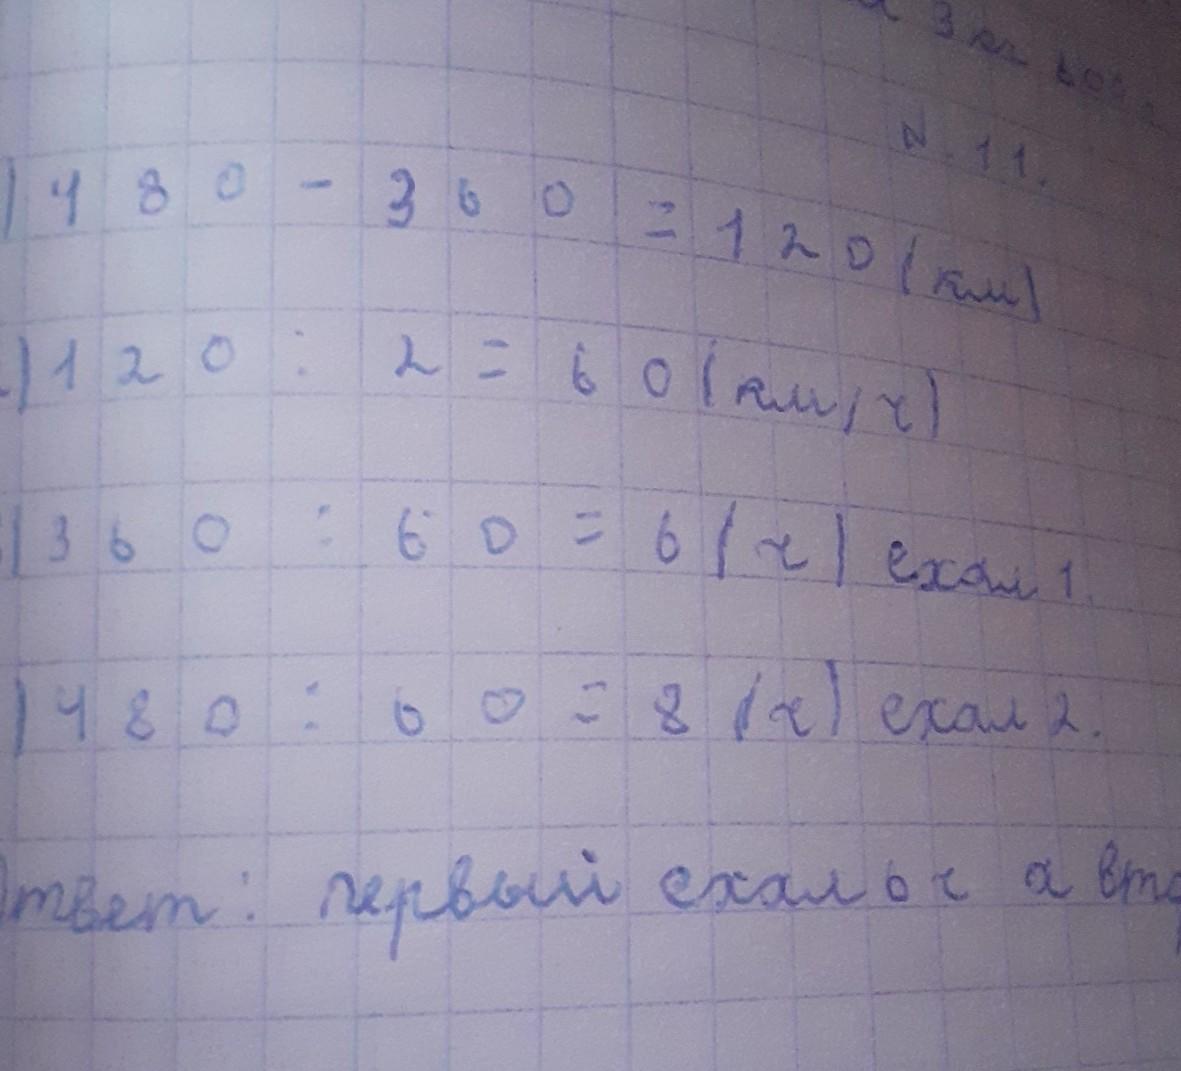 3 кг
N. 11.
) 480 - 360 = 120 (км)
) 120 : 2 = 60 (км/ч)
) 360 : 60 = 6 (ч) ехал 1.
) 480 : 60 = 8 (ч) ехал 2.
Ответ: первый ехал 6 ч а вто